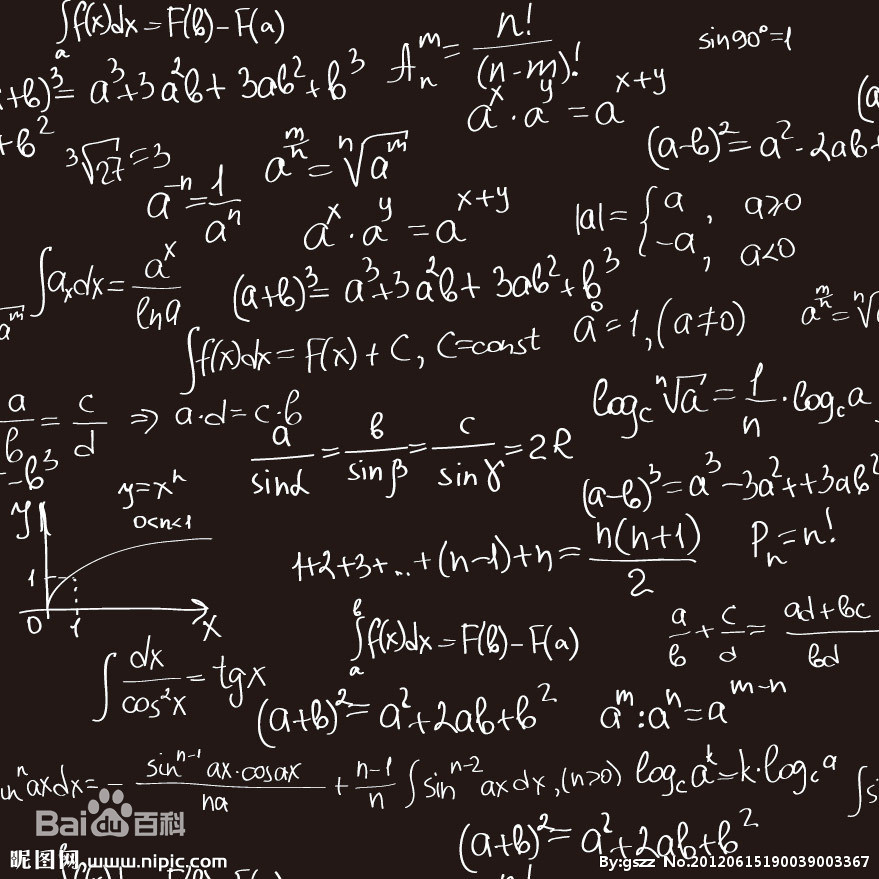 ∫ₐ f(x)dx = F(b) - F(a)
Aₙᵐ = n!/(n-m)!
sin90°=1
+b)³ = a³+3a²b+3ab²+b³
aˣ·aʸ = aˣ⁺ʸ
(a
+b²
³√27=3
a^(m/n) = ⁿ√aᵐ
(a-b)² = a²-2ab+
a⁻ⁿ = 1/aⁿ
aˣ·aʸ = aˣ⁺ʸ
|a| = { a, a≥0
-a, a<0
∫aₓdx = aˣ/lna
(a+b)³ = a³+3a²b+3ab²+b³
aᵐ
a⁰=1, (a≠0)
a^(m/n) = ⁿ√a
∫f(x)dx = F(x)+C, C=const
a/b = c/d ⇒ a·d=c·b
log_c ⁿ√a = 1/n · log_c a
a/sinα = b/sinβ = c/sinγ = 2R
-b³
(a-b)³ = a³-3a²++3ab²
y=xⁿ
0<n<1
y
1
0 1 x
1+2+3+...+(n-1)+n = n(n+1)/2
Pₙ=n!
∫ₐᵇ f(x)dx = F(b) - F(a)
a/b + c/d = ad+bc/bd
∫dx/cos²x = tgx
(a+b)² = a²+2ab+b²
aᵐ:aⁿ = aᵐ⁻ⁿ
inⁿaxdx = - sinⁿ⁻¹ax·cosax/na + n-1/n ∫sinⁿ⁻²axdx, (n>0)
log_c aᵏ = k·log_c a
∫s
Bai du 百科
(a+b)² = a²+2ab+b²
昵图网 www.nipic.com
By:gszz No.20120615190039003367
∫f(x)dx = F(b) - F(a)
n!